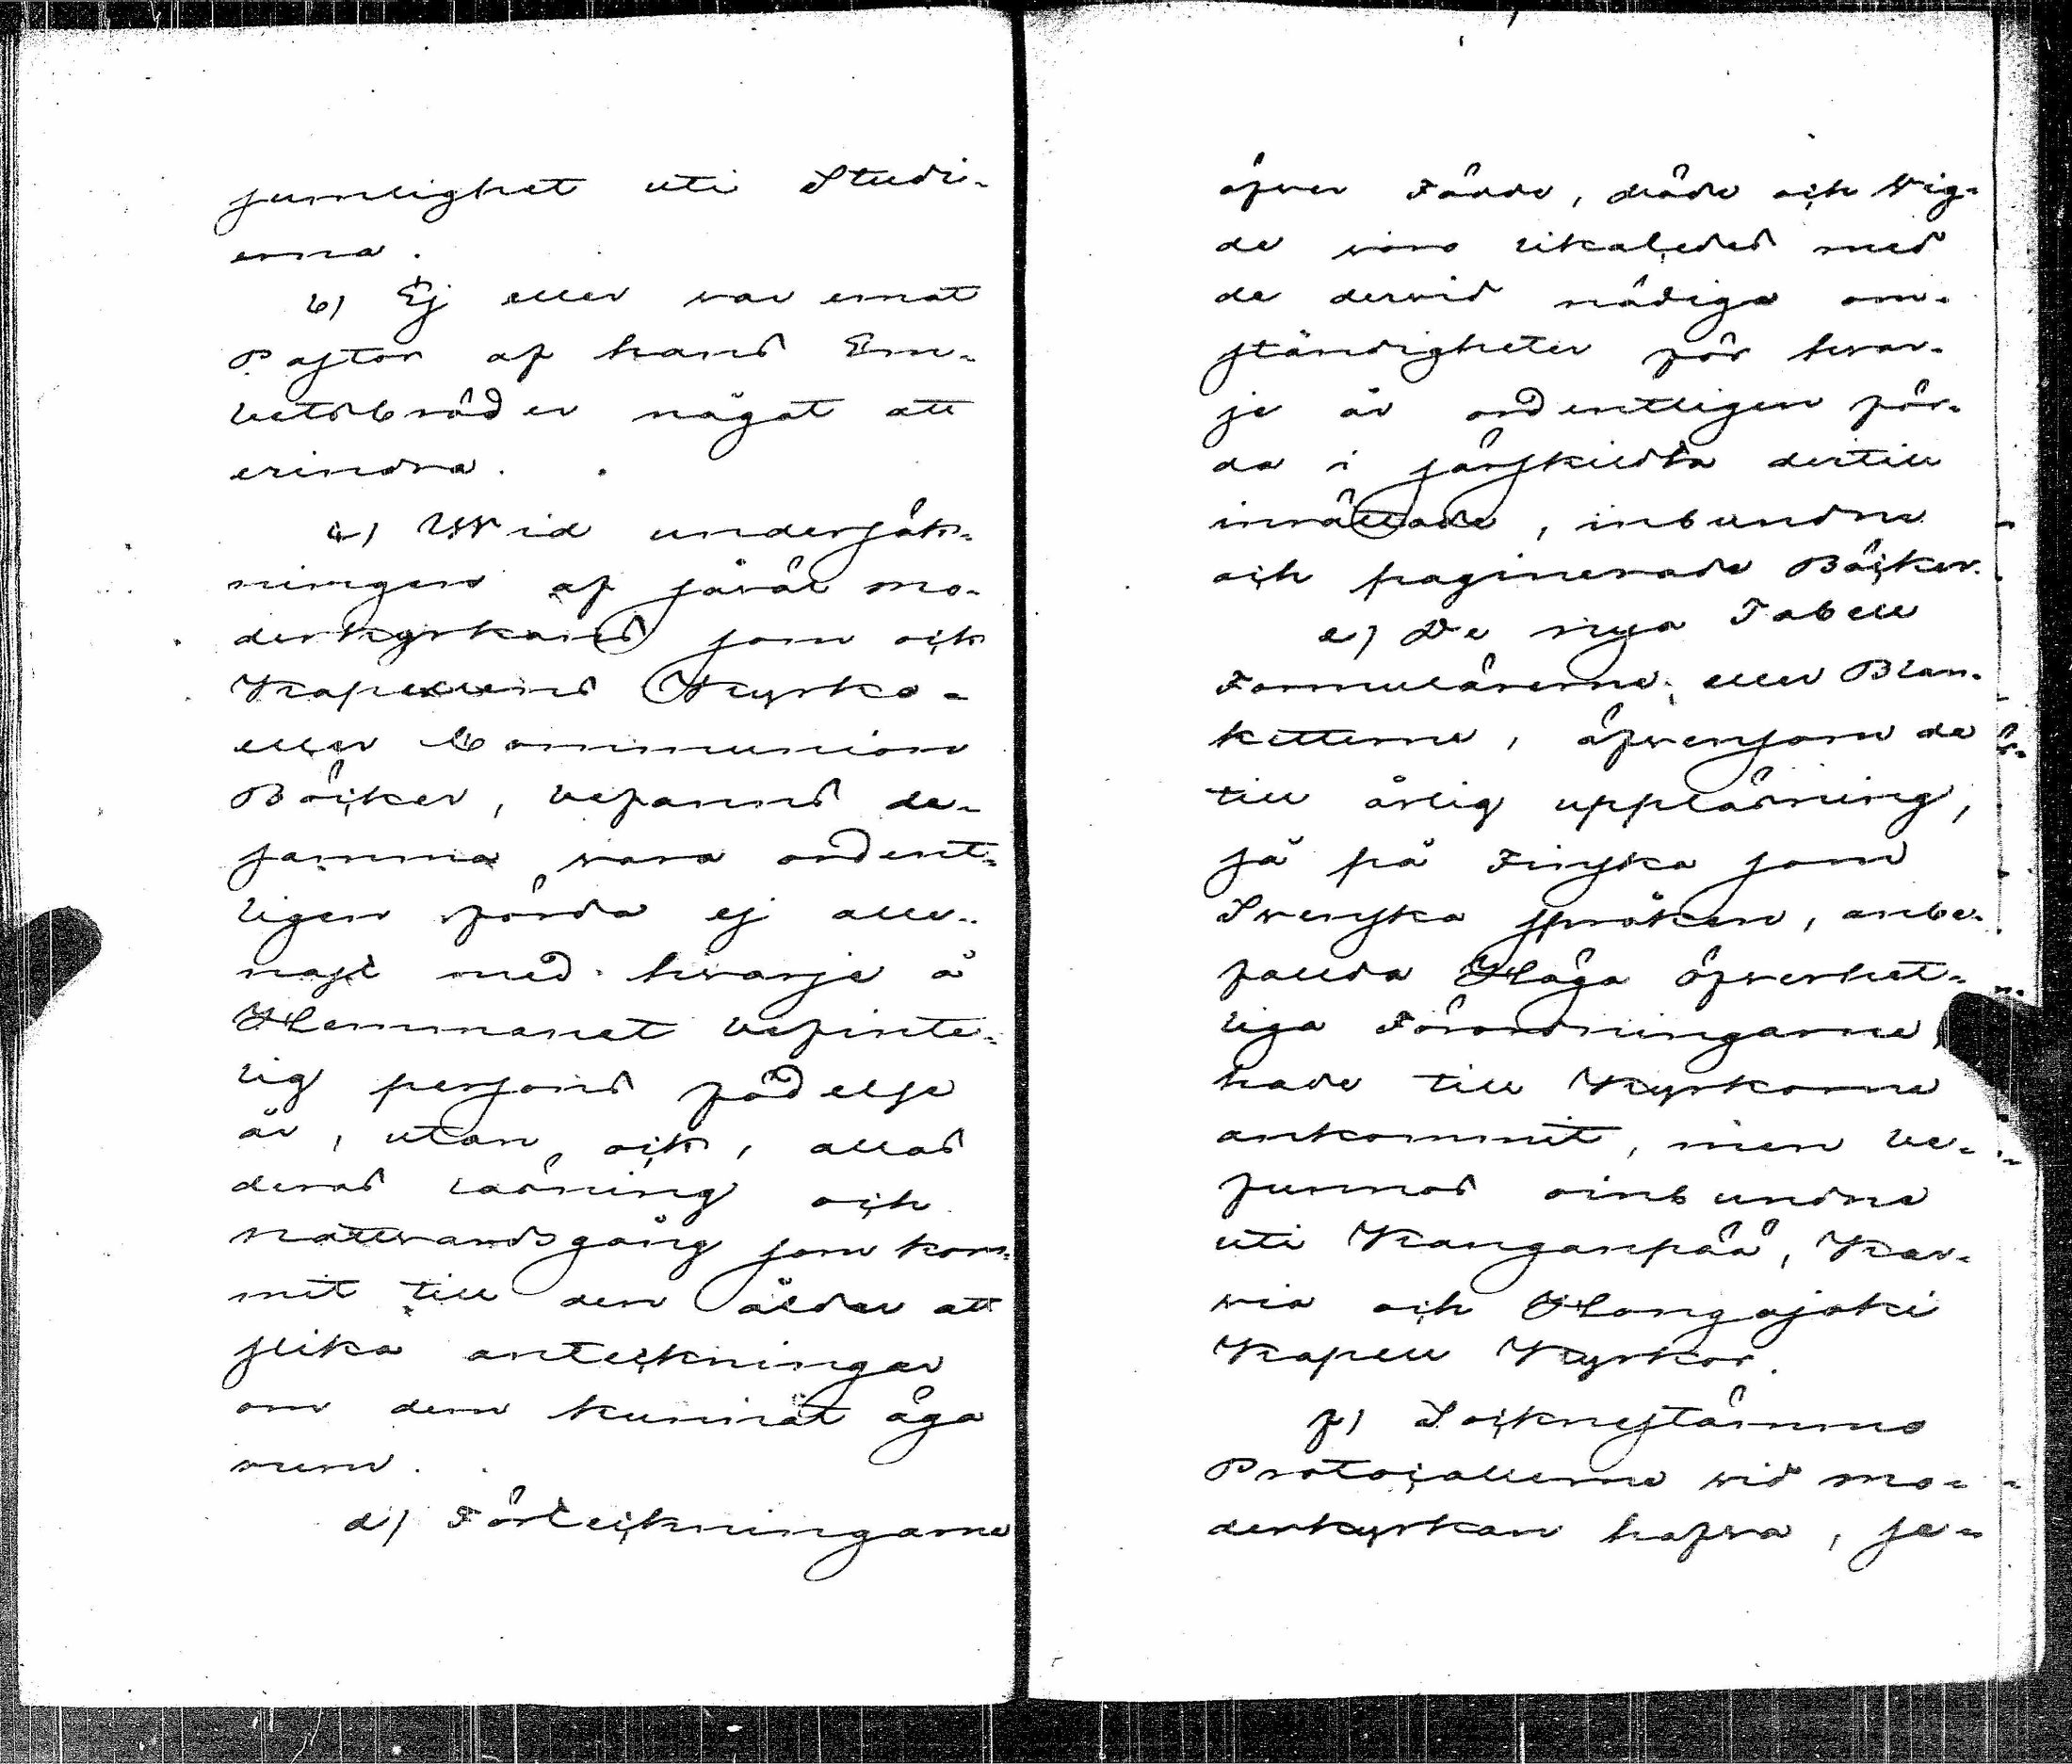 sumlighet uti Studi-
erna.
b) Ej eller var ernat
Pastor af hans Em-
betsbröder något att
erindra.
c) Wid undersök-
ningen af såväl mo-
derkyrkans som ock
Kapellens Kyrko-
eller Communion
Böcker, befanns de-
samma vara ordent-
ligen förda ej alle-
nast med hvarje å
Hemmanet befinte-
lig persons födelse
år, utan ock, allas
deras läsning och
nattvardsgång som kom-
mit till den ålder att
slika anteckningar
om dem kunnat äga
rum.
d) Förteckningarne
öfver Födde, döde och Vig-
de voro likaledes med
de dervid nödiga om-
ständigheter för hvar-
je år ordentligen för-
da i särskildta dertill
inrättade, inbundna
och paginerade Böcker.
e) De nya Tabell
Formulärerne, eller Blan-
ketterne, äfvensom de
till årlig uppläsning,
så på Finska som
Svenska språken, anbe-
fallda Höga öfverhet-
liga Förordningarne
hade till Kyrkorne
ankommit, men be-
funnos oinbundna
uti Kanganpää, Kar-
via och Hongajoki
Kapell Kyrkor.
f) Sockneständs
Protocollerne vid mo-
derkyrkan hafva, se-